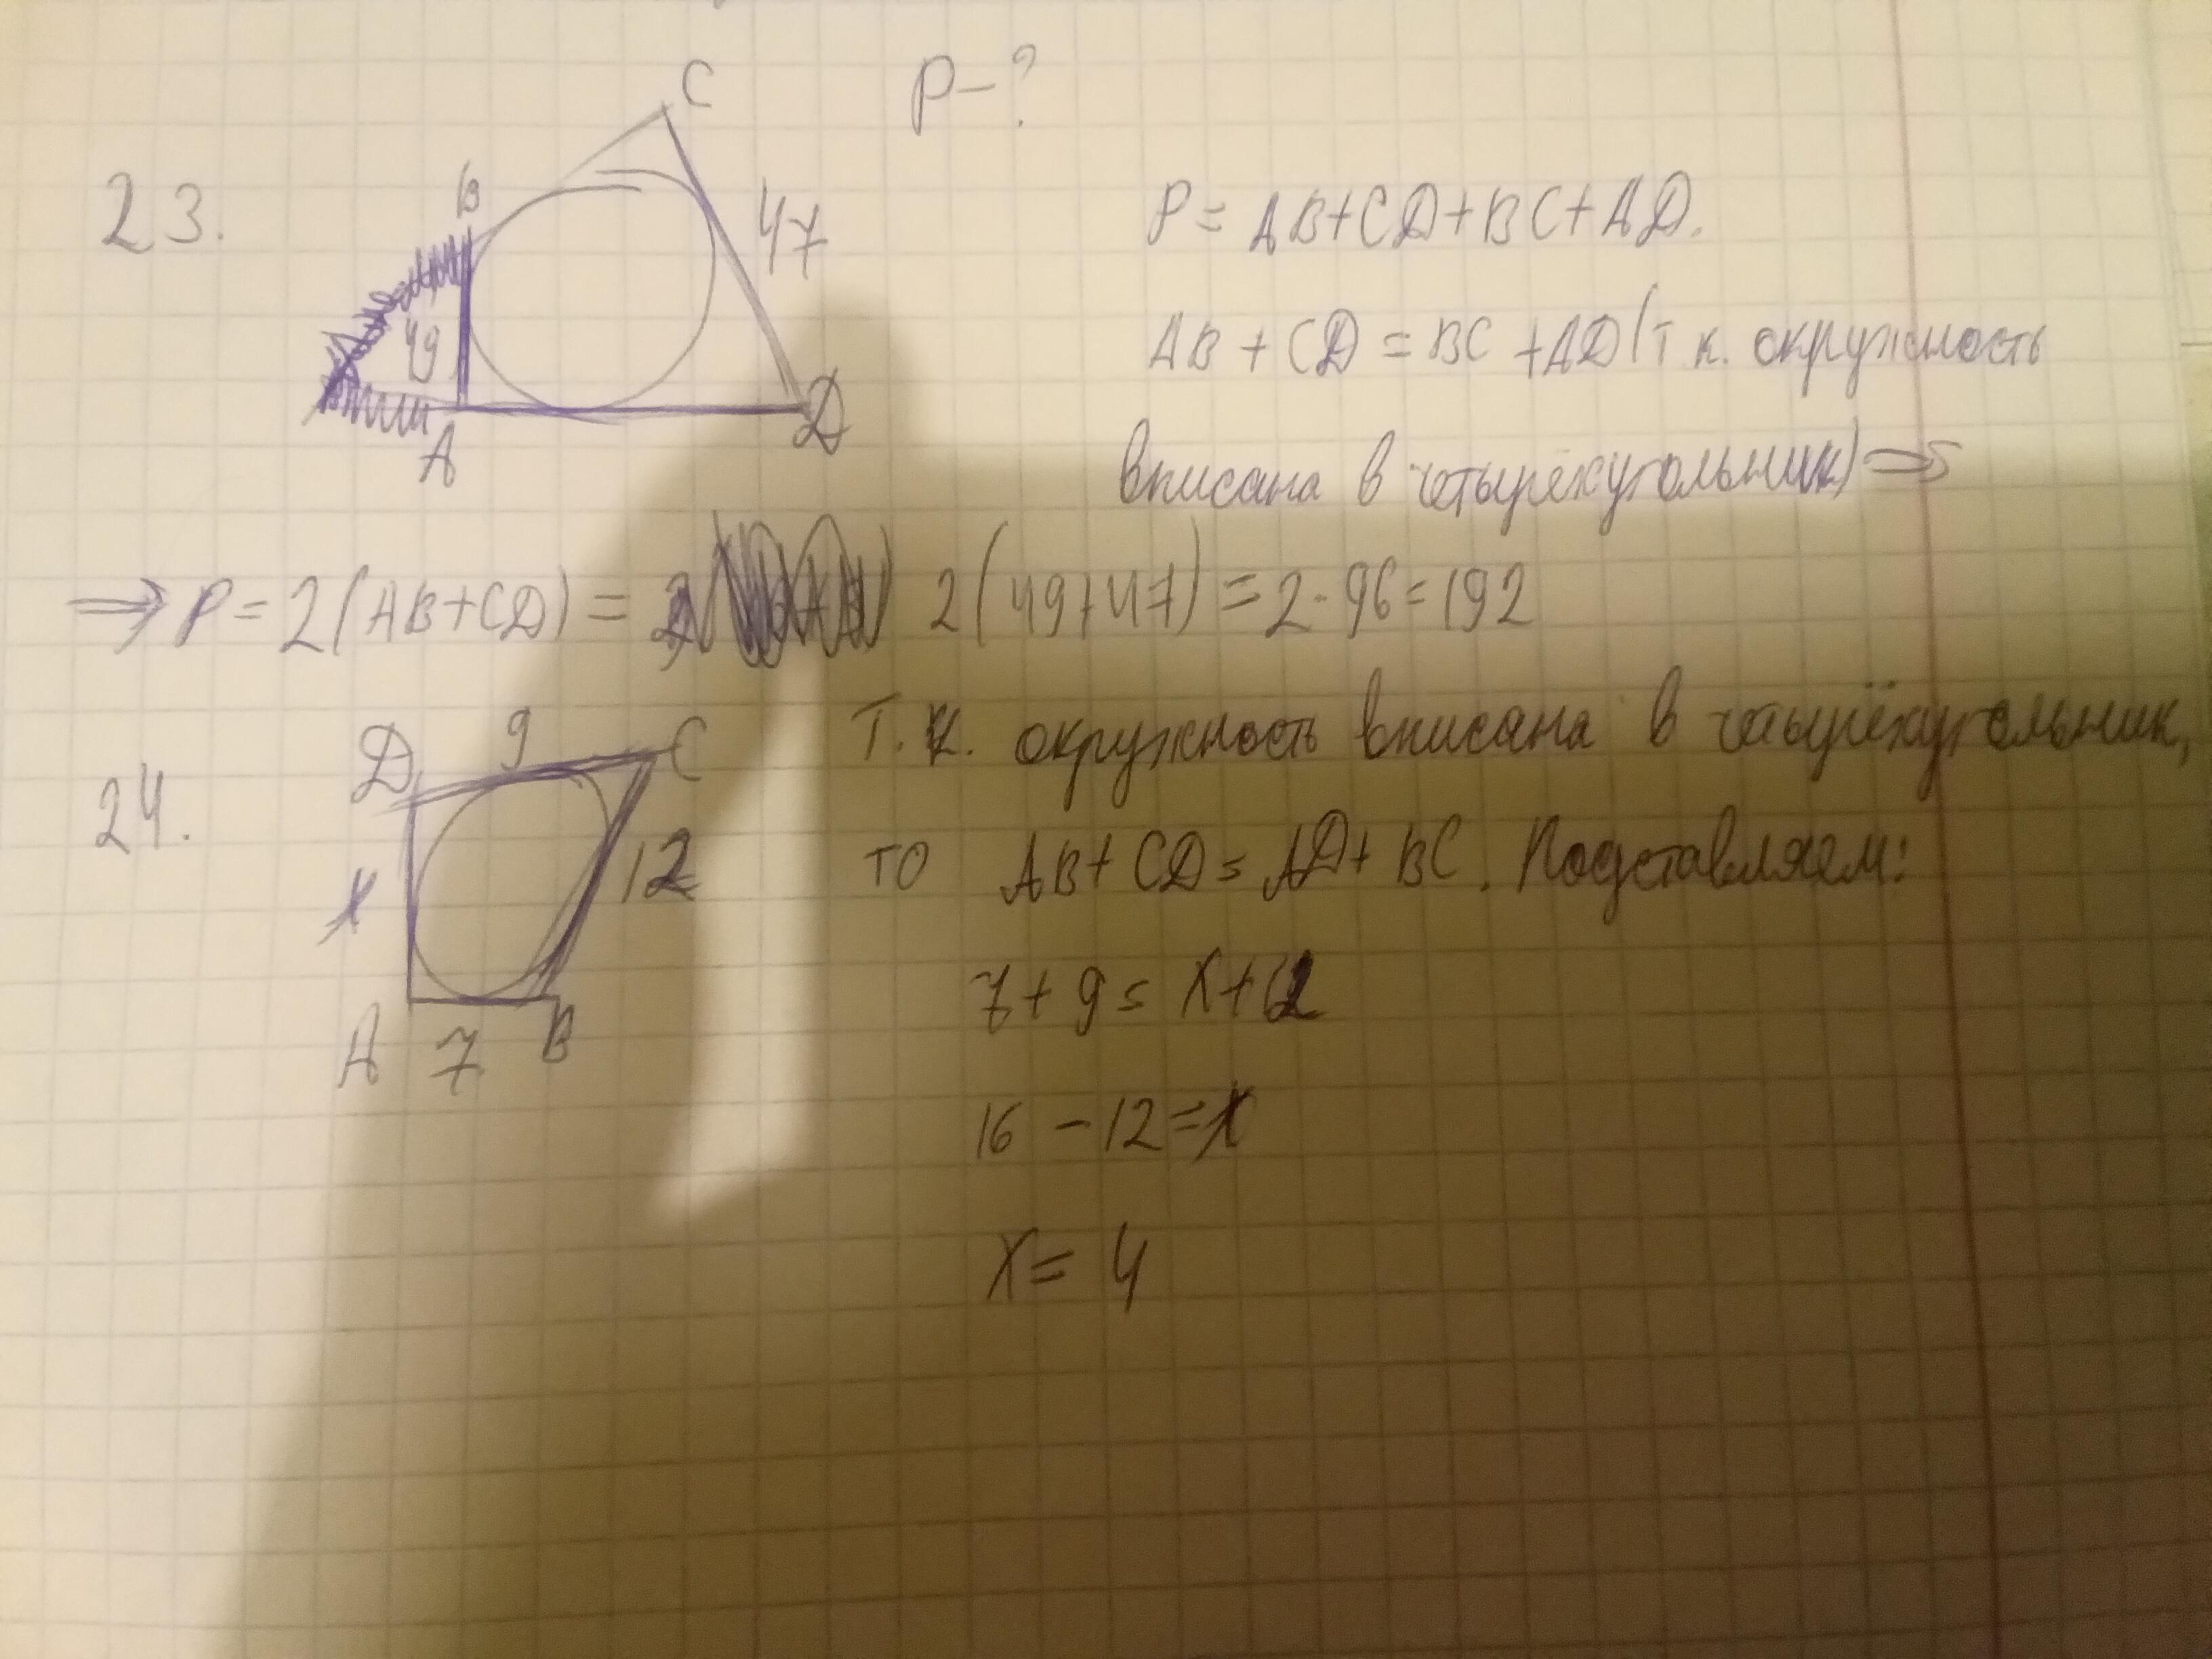 C
P-?
23.
B
47
P = AB+CD+BC+AD.
49
AB + CD = BC +AD (т к. окружность
A
D
вписана в четырёхугольник) =>
=> P = 2(AB+CD) = 2(49+47) = 2·96 = 192
24.
D 9 C
Т.к. окружность вписана в четырёхугольник,
x 12
то AB+CD = AD+BC. Подставляем:
7+9 = x+12
A 7 B
16 - 12 = x
x = 4